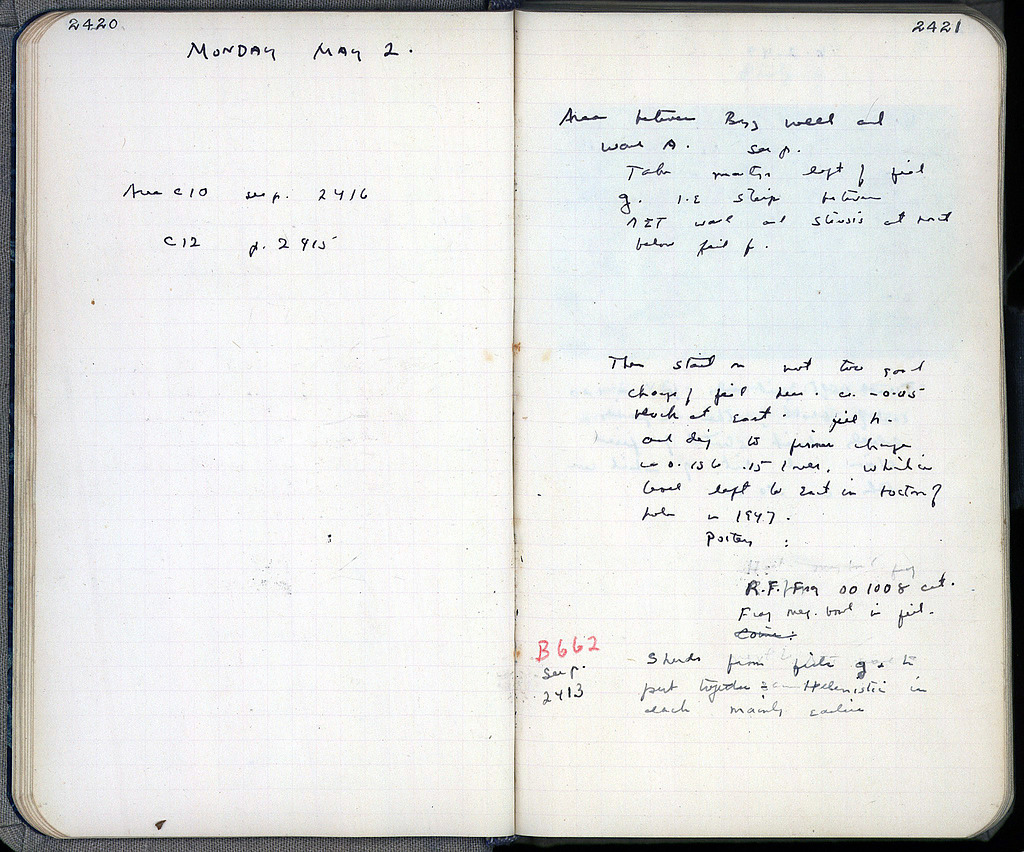 2420
MONDAY MAY 2.
Area C10 see p. 2416
C12 p. 2415
2421
Area between Byz well and
wall A. see p.
Take martyr left of fill
g. I.E strip between
wall and at
below fill f.
Then start on not too good
change of fill here. ca. -0.05
reach at East. fill h.
and dig to firmer change
ca 0.13 to .15 lower, which is
level left to East in section of
hole in 1947.
Pottery :
R.F. Frag 001008 cat.
Frag Meg. bowl in fill.
Coins:
B662
see p.
2413
Sherds from fills g + h
put together = Hellenistic in
each mainly earlier